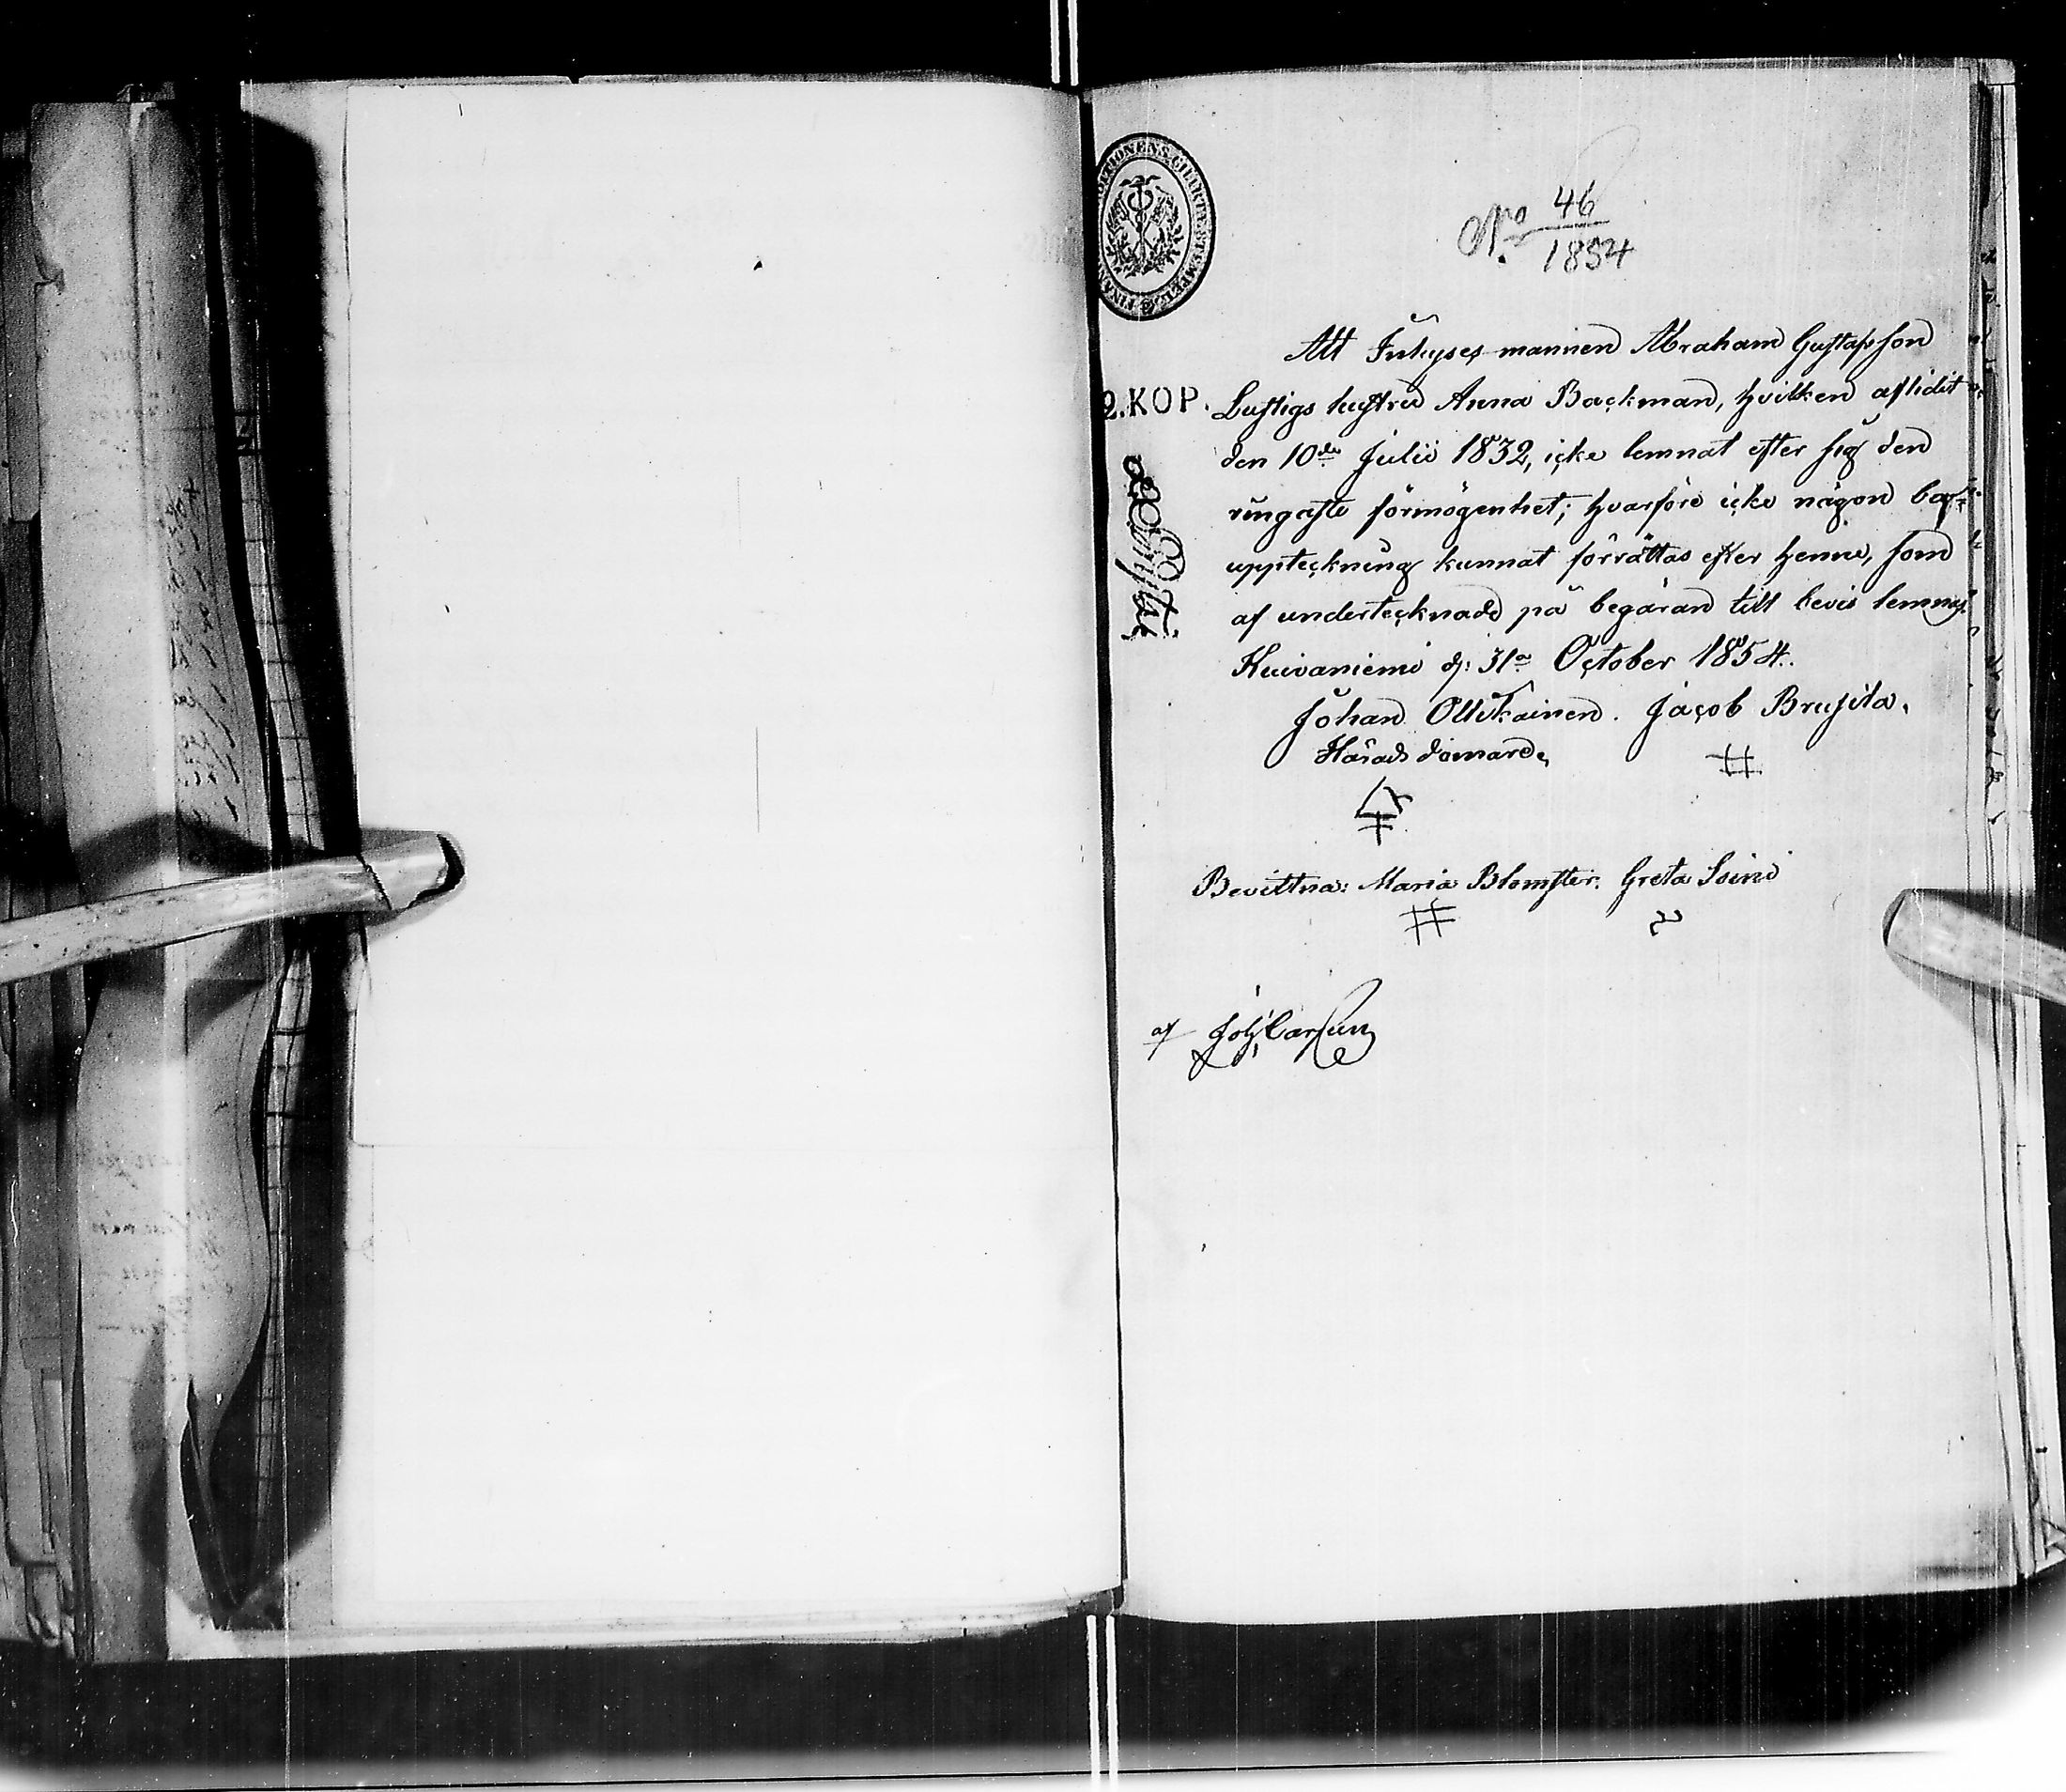 No 46
1854
Att Inhyses mannen Abraham Gustafsson
2. KOP. Lustigs hustru Anna Backman, hvilken aflidit
den 10de Julii 1832, icke lemnat efter sig den
ringaste förmögenhet; hvarföre icke någon bo-
uppteckning kunnat förrättas efter henne, som
af undertecknade på begäran till bevis lemnas.
Kuivaniemi d: 31a October 1854.
Johan Ollikainen. Jacob Brusila.
Härads domare.
Bevittna: Maria Blomster. Greta Soini
af Joh. Carlsen